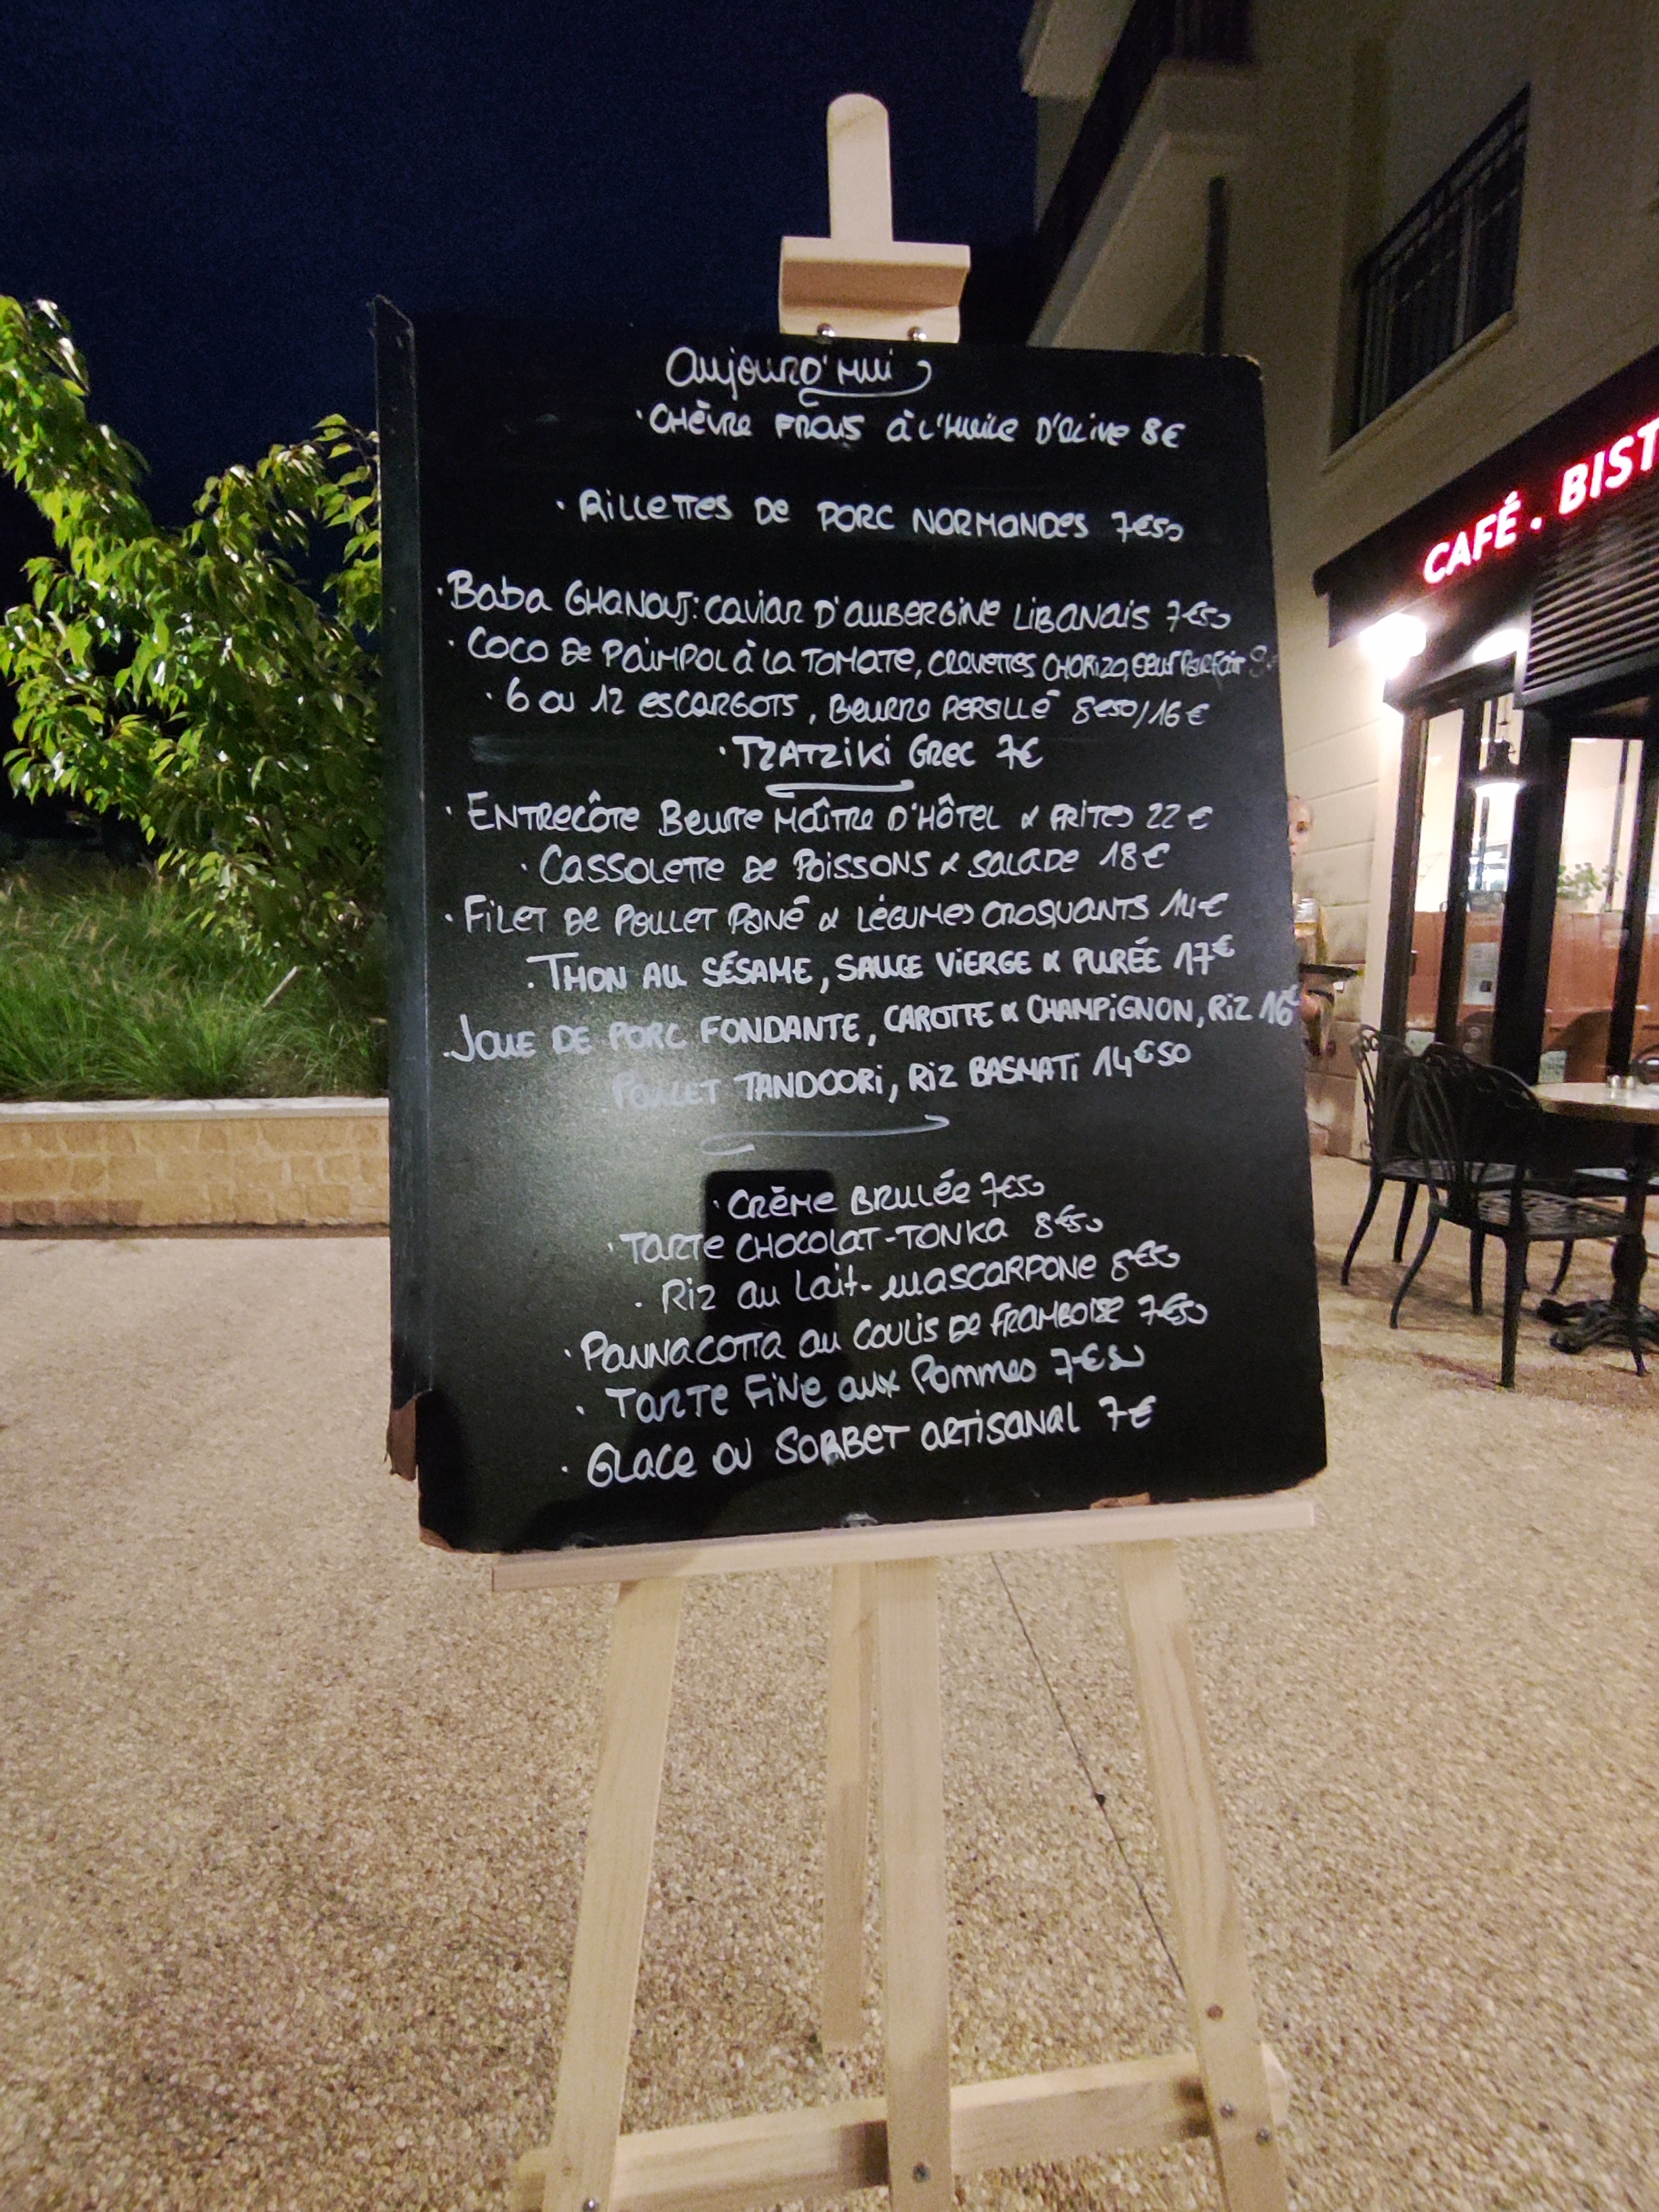 Aujourd'hui
· Chèvre frais à l'huile d'olive 8€
· Rillettes de porc normandes 7€50
· Baba Ghanouj: caviar d'aubergine libanais 7€50
· Coco de Paimpol à la tomate, crevettes chorizo, oeuf parfait
· 6 ou 12 escargots, beurre persillé 8€50/16€
· Tzatziki Grec 7€
· Entrecôte beurre maître d'hôtel & frites 22€
· Cassolette de poissons & salade 18€
· Filet de poulet pané & légumes croquants 14€
· THON AU SÉSAME, SAUCE VIERGE & PURÉE 17€
· JOUE DE PORC FONDANTE, CAROTTE & CHAMPIGNON, RIZ 16€
POULET TANDOORI, RIZ BASMATI 14€50
· Crème brulée 7€50
· Tarte chocolat-tonka 8€50
· Riz au lait-mascarpone 8€50
· Pannacotta au coulis de framboise 7€50
· Tarte fine aux pommes 7€50
· Glace ou sorbet artisanal 7€
CAFÉ . BIST